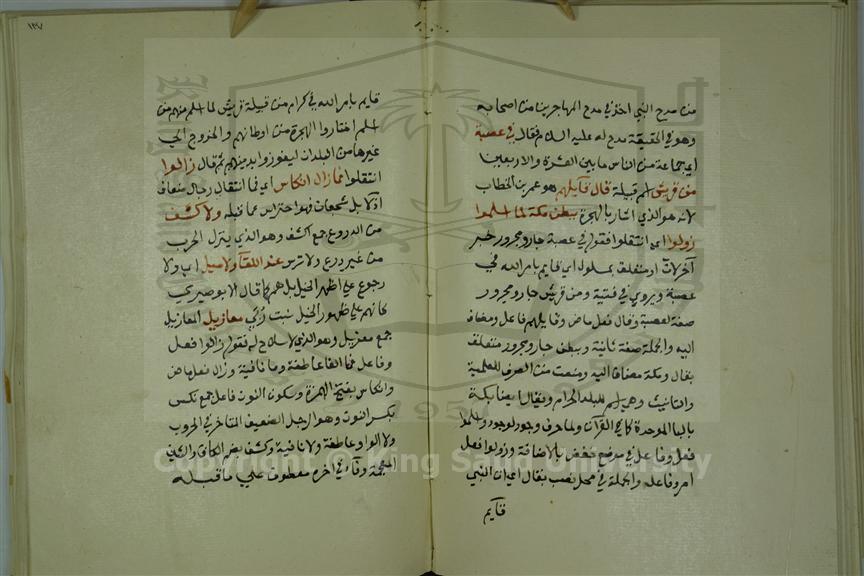 من مدح النبي اخذ في مدح المهاجرين من اصحابه
وهو في الحقيقة مدح له عليه السلام فقال في عصبة
اي جماعة من الناس ما بين العشرة والاربعين
من قريش اسم قبيلة قال قايلهم هو عمر بن الخطاب
لانه هو الذي اشار بالهجرة ببطن مكة لما اسلموا
زولوا اي انتقلوا فقوله في عصبة جار ومجرور خبر
آخر لانّ او متعلق بمسلول اي قايم بامر الله في
عصبة ويروي في فتية ومن قريش جار ومجرور
صفة لعصبة وقال فعل ماض وقايلهم فاعل ومضاف
اليه والجملة صفة ثانية وببطن جار ومجرور متعلق
بقال ومكة مضاف اليه ومنعت من الصرف للعلمية
والتانيث وهي اسم للبلد الحرام ويقال ايضا بكة
بالبا الموحدة كما في القرآن ولما حرف وجود لوجود واسلموا
فعل وفاعل في موضع خفض بالاضافة وزولوا فعل
امر وفاعله والجملة في محل نصب بقال اي ان النبي
قايم
١٣٧
قايم بامر الله في كرام من قبيلة قريش لما اسلم منهم من
اسلم اختاروا الهجرة من اوطانهم والخروج الي
غيرها من البلدان ليفوزوا بدينهم ثم قال زالوا
انتقلوا فما زال انكاس اي فما انتقل رجال ضعاف
اذلا بل شجعان فهو احتراس مما قبله ولا كشف
من الدروع جمع كشف وهو الذي ينزل الحرب
من غير درع ولا ترس عند اللقآ ولا ميل اي ولا
رجوع علي اظهر الخيل بل هم كما قال الابوصيري
كانهم علي ظهور الخيل نبت ربي معازيل المعازيل
جمع معزيل وهو الذي لا سلاح له فقوله زالوا فعل
وفاعل فما الفا عاطفة وما نافية وزال فعل ماض
وانكاس بفتح الهمزة وسكون النون فاعل جمع نكس
بكسر النون وهو الرجل الضعيف المتاخر في الحروب
ولا الواو عاطفة ولا نافية وكشف بضم الكاف والشين
المعجمة وفآء في اخره معطوف علي ما قبله
Copyright © King Saud University
1957